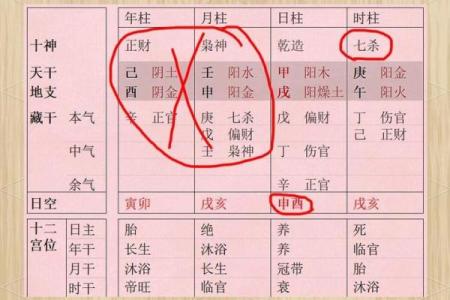 年柱 月柱 日柱 时柱
十神 正财 枭神 乾造 七杀
天干 己 阴土 壬 阳水 甲 阳木 庚 阳金
地支 酉 阴金 申 阳金 戌 阳燥土 午 阳火
藏干 本气 辛 正官 庚 七杀 戊 偏财 丁 伤官
戊 偏财 己 正财
中气 壬 枭神 丁 伤官
余气 辛 正官
日空 寅卯 戌亥 申酉 戌亥
十二宫位 日主 胎 绝 养 死
年干 长生 沐浴 养 临官
月干 沐浴 长生 冠带 胎
时干 帝旺 临官 衰 沐浴